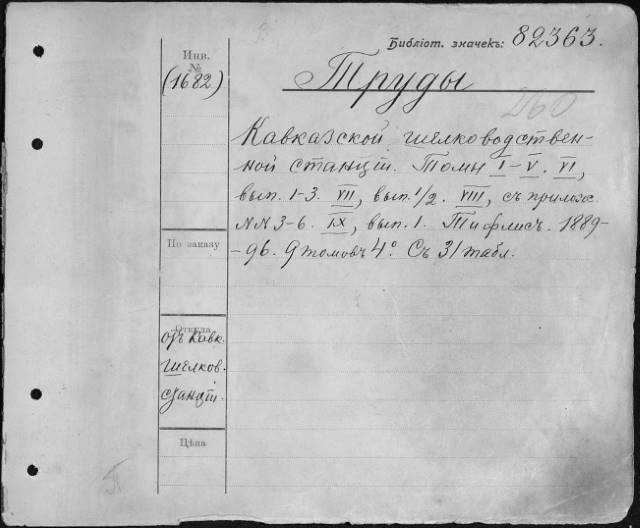 Библiот. значекъ: 82363.
Инв.
№
(1682)
Труды
260
Кавказской шелководствен-
ной станцiи. Томы I–V. VI,
вып. 1-3. VII, вып. 1/2. VIII, съ прилож.
NN 3-6. IX, вып. 1. Тифлисъ. 1889-
-96. 9 томовъ 4°. Съ 31 табл.
По заказу
Откуда
отъ Кавк.
шелков.
станцiи.
Цѣна
П